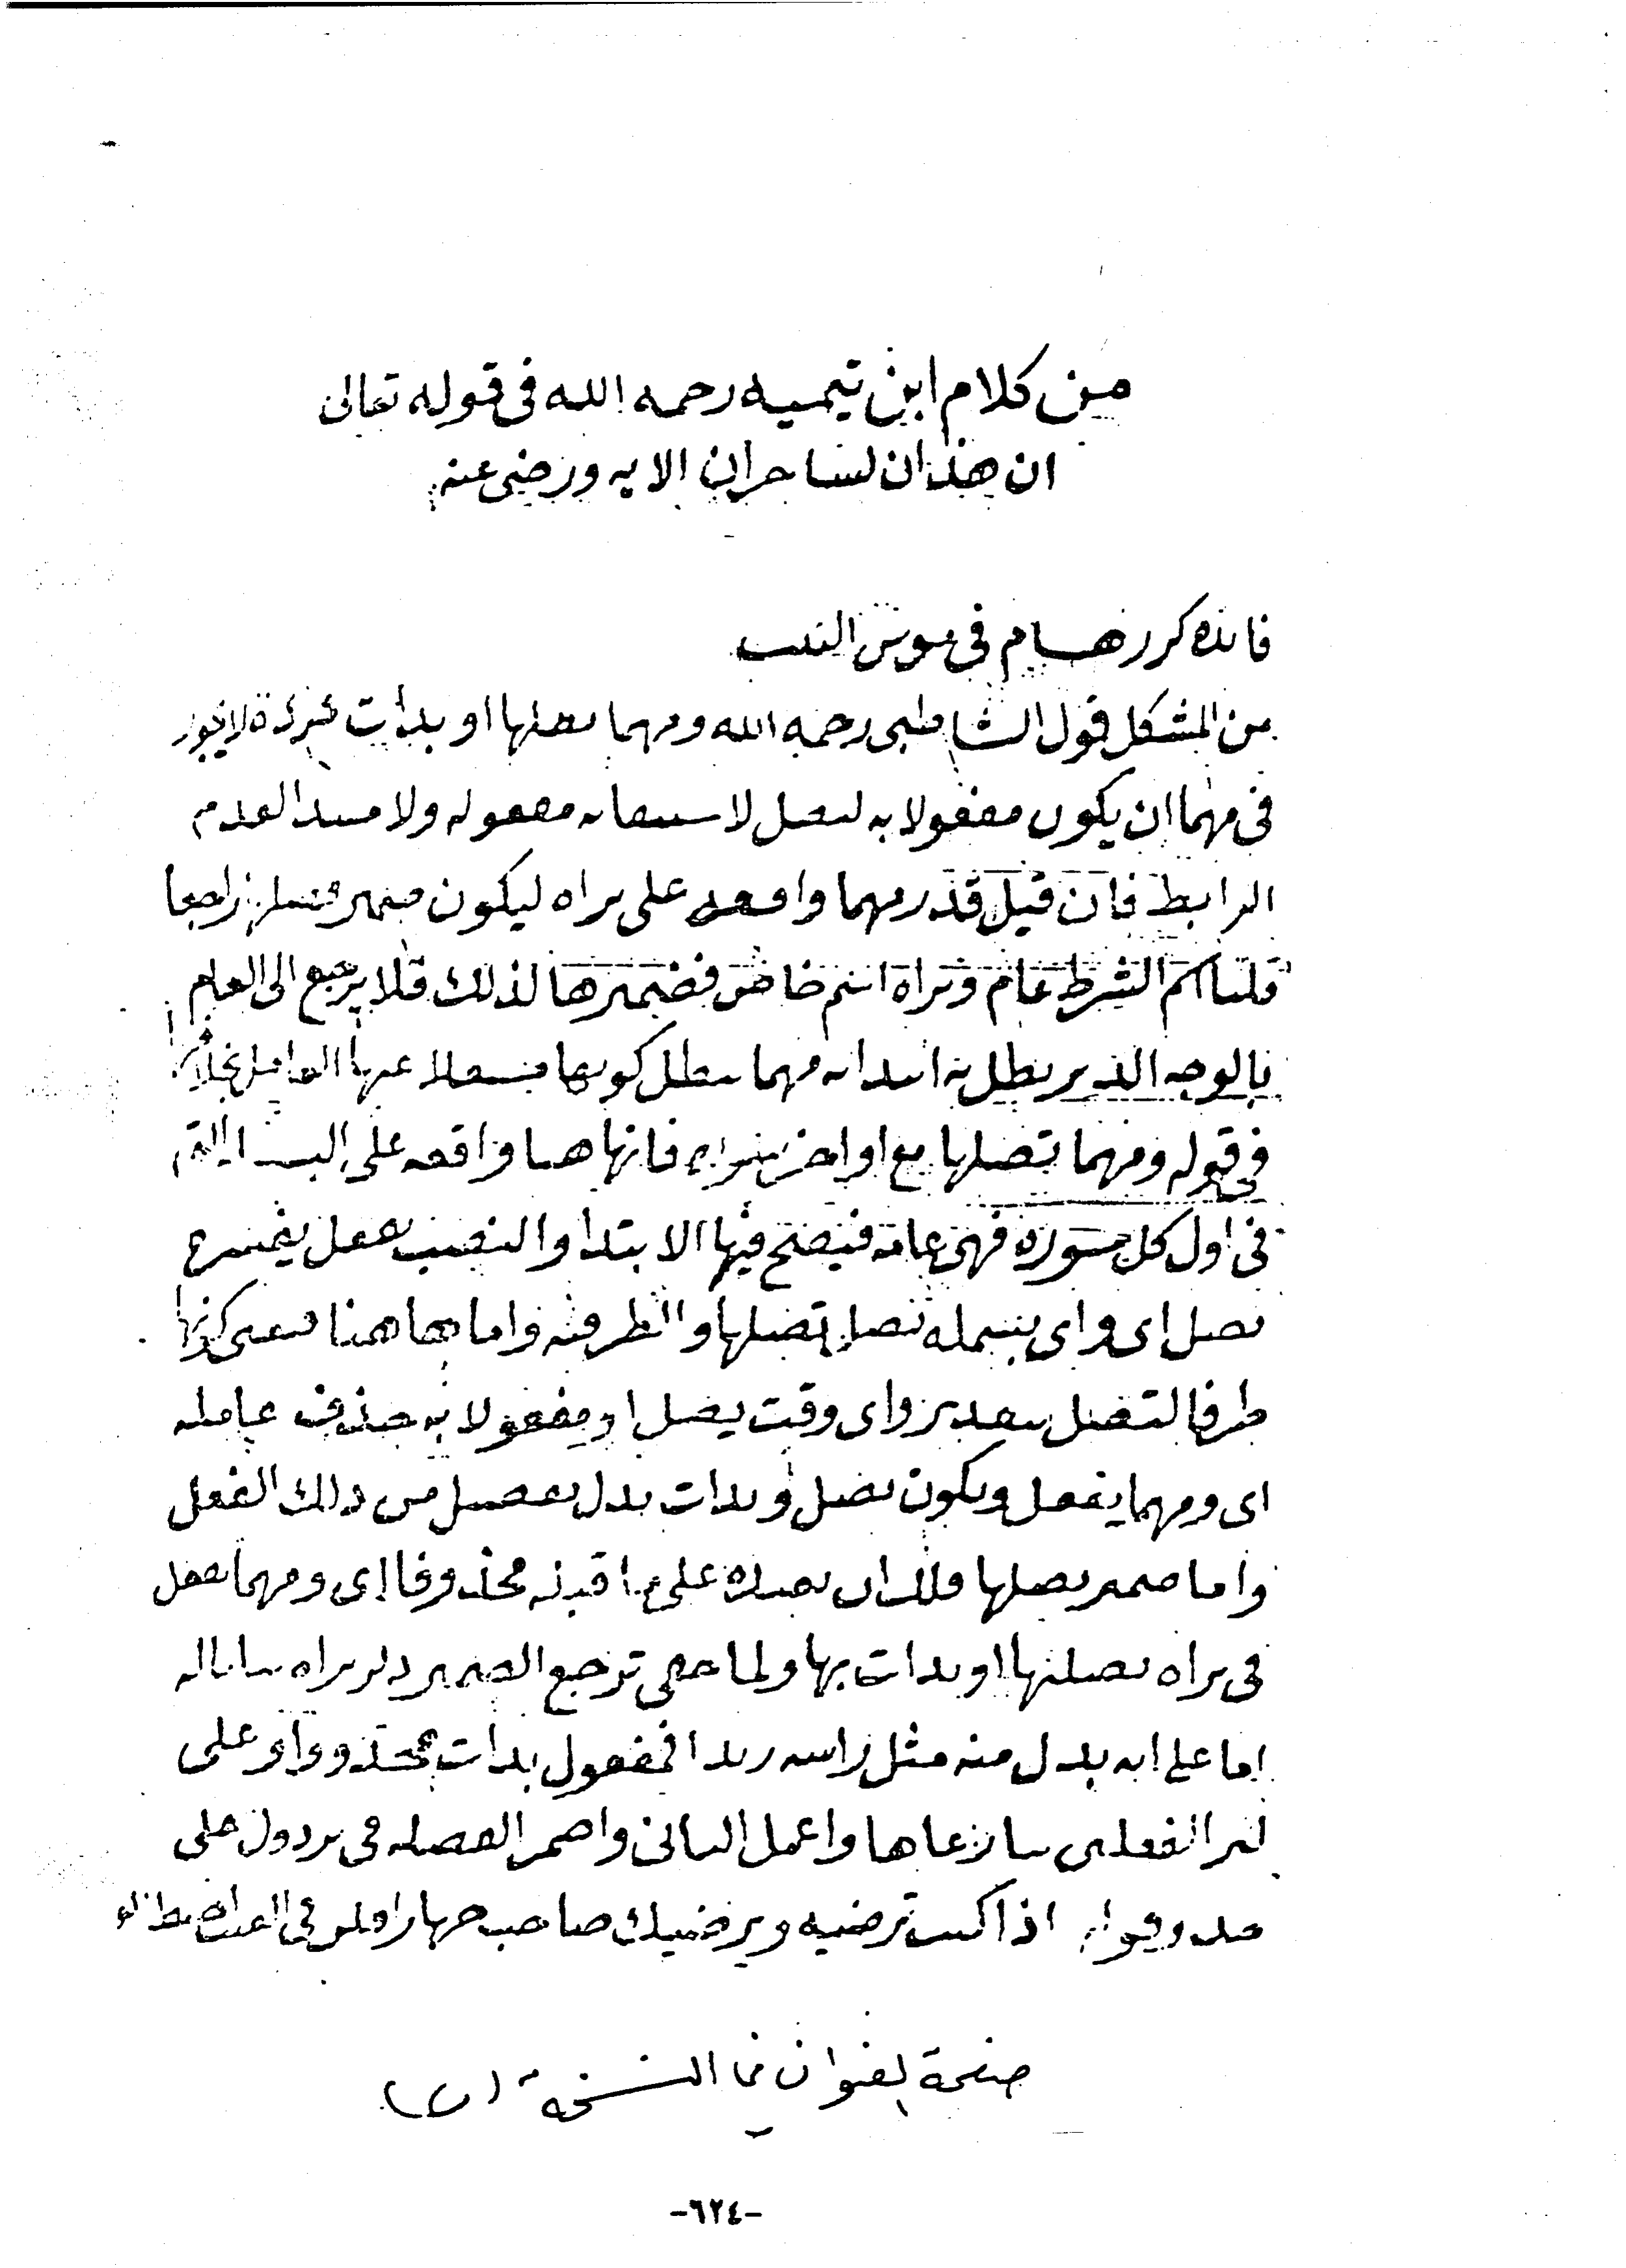 من كلام ابن تيميه رحمه الله في قوله تعالى
ان هذان لساحران الايه ورضى عنه
فائده كرر هسام في
من المشكل قول الشاطبى رحمه الله ومهما تصلها او بدأت براة لا يجوز
فى مهما ان يكون مفعولا به لتصل لاستيفائه مفعوله ولا مبتدا لعدم
الرابط فان قيل قدر مهما واقعه على براه ليكون ضمير تصلها راجعا
قلنا اسم الشرط عام وبراة اسم خاص فضميرها لذلك فلا يرجع الى العام
بالوجه الذى بطل به ابتدائه مهما يبطل كونها مشتغلا عنها العامل
فى قوله ومهما تصلها مع اواخر سورة فانها هنا واقعه على البسمله التى
فى اول كل سوره فهى عامه فيصح فيها الابتدا والنصب بفعل يفسره
تصل اى واى بسمله تصل تصلها والظرفيه واما هنا فيتعين كونها
ظرفا لتصل بتقدير واى وقت تصل او مفعولا به حذف عامله
اى ومهما يفعل ويكون تصل وبدات بدل تفصيل من ذلك الفعل
واما ضمير تصلها فلك ان تعيده على ما قبله محذوفا اى ومهما تفعل
فى براه تصلها او بدات بها ولما خفى ترجع الضمير ذكر براه بيانا له
اما على انه بدل منه مثل راسه زيدا فمفعول بدات محذوف او على
ان الفعلين تنازعاها واعمل الثانى واضمر الفضله فى الاول على
حد قوله اذا كنت ترضيه ويرضيك صاحب جهارا فكن فى الغيب
صفحة العنوان من النسخة (ب)
-٦٢٤-